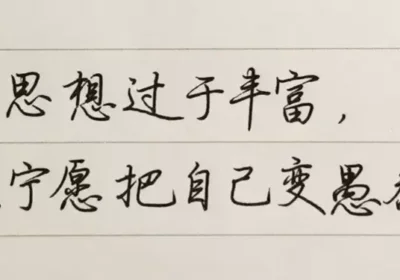 思想过于丰富，
宁愿把自己变愚